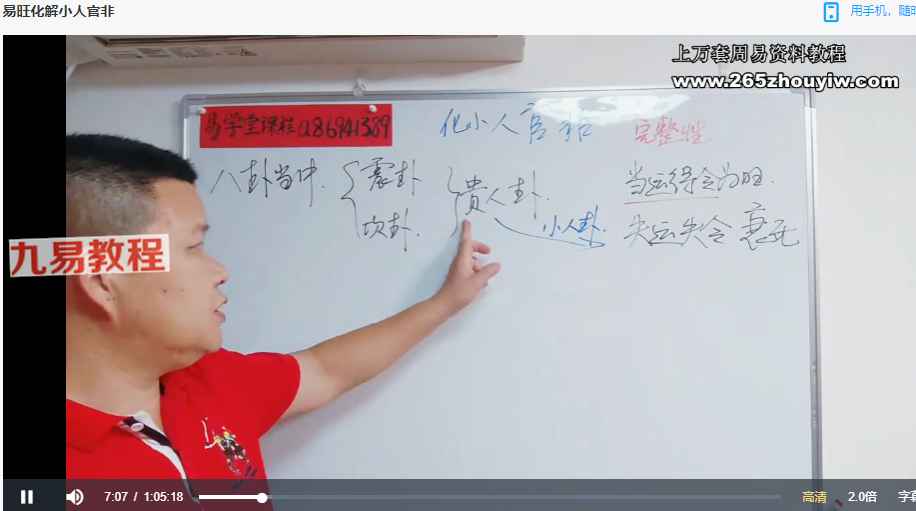 易旺化解小人官非
用手机，随时
上万套周易资料教程
www.265zhouyiw.com
易学堂课程a86941389
化小人官非
完整性
八卦当中.
震卦
坎卦.
贵人卦.
小人卦.
当运得令为旺.
失运失令 衰死
九易教程
7:07 / 1:05:18
高清
2.0倍
字幕